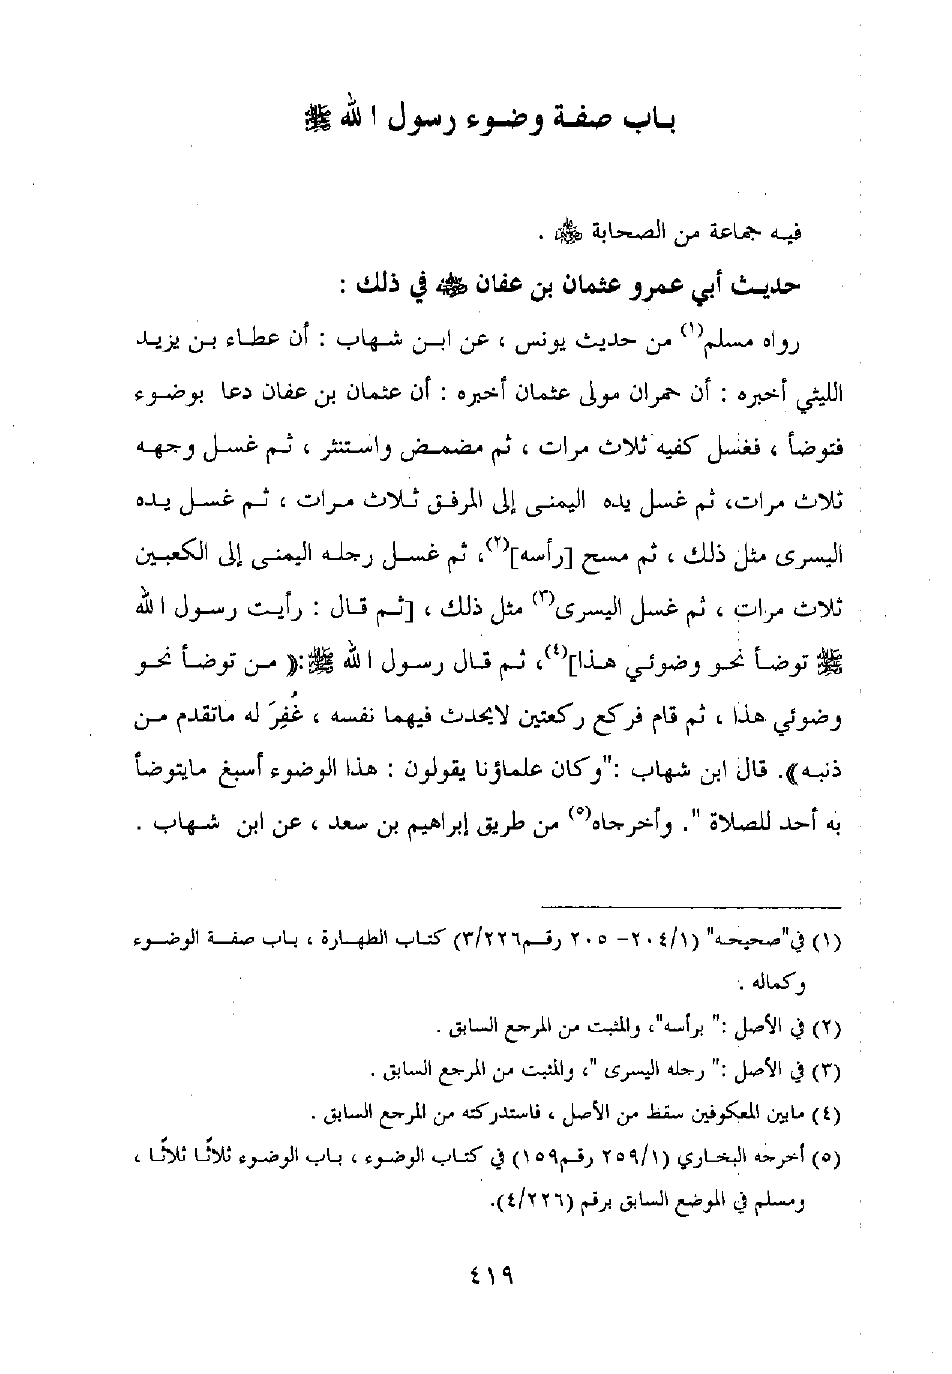 باب صفة وضوء رسول الله ﷺ
فيه جماعة من الصحابة ﷺ .
حديث أبي عمرو عثمان بن عفان في ذلك :
رواه مسلم(١) من حديث يونس ، عن ابن شهاب : أن عطاء بن يزيد
الليثي أخبره : أن حمران مولى عثمان أخبره : أن عثمان بن عفان دعا بوضوء
فتوضأ ، فغسل كفيه ثلاث مرات ، ثم مضمض واستنثر ، ثم غسل وجهه
ثلاث مرات، ثم غسل يده اليمنى إلى المرفق ثلاث مرات ، ثم غسل يده
اليسرى مثل ذلك ، ثم مسح [رأسه](٢)، ثم غسل رجله اليمنى إلى الكعبين
ثلاث مرات ، ثم غسل اليسرى(٣) مثل ذلك ، [ثم قال : رأيت رسول الله
ﷺ توضأ نحو وضوئي هذا](٤)، ثم قال رسول الله ﷺ :(( من توضأ نحو
وضوئي هذا ، ثم قام فركع ركعتين لايحدث فيهما نفسه ، غُفِرَ له ماتقدم من
ذنبه)). قال ابن شهاب :"وكان علماؤنا يقولون : هذا الوضوء أسبغ مايتوضأ
به أحد للصلاة ". وأخرجاه(٥) من طريق إبراهيم بن سعد ، عن ابن شهاب .
(١) في"صحيحه" (٢٠٤/١- ٢٠٥ رقم٣/٢٢٦) كتاب الطهارة ، باب صفة الوضوء
وكماله .
(٢) في الأصل :" برأسه"، والمثبت من المرجع السابق .
(٣) في الأصل :" رجله اليسرى "، والمثبت من المرجع السابق .
(٤) مابين المعكوفين سقط من الأصل ، فاستدركته من المرجع السابق .
(٥) أخرجه البخاري (٢٥٩/١ رقم١٥٩) في كتاب الوضوء ، باب الوضوء ثلاثًا ثلاثًا ،
ومسلم في الموضع السابق برقم (٤/٢٢٦).
٤١٩